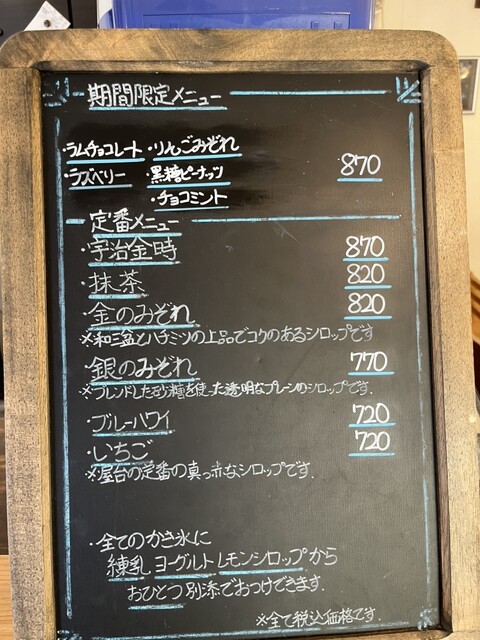 期間限定メニュー
・ラムチョコレート ・りんごみぞれ
・ラズベリー 黒糖ピーナッツ 870
・チョコミント
定番メニュー
・宇治金時 870
・抹茶 820
・金のみぞれ 820
※和三盆とハチミツの上品でコクのあるシロップです
・銀のみぞれ 770
※ブレンドしたお砂糖を使った透明なプレーンのシロップです.
・ブルーハワイ 720
・いちご 720
※屋台の定番の真っ赤なシロップです.
・全てのかき氷に
練乳 ヨーグルト レモンシロップ から
おひとつ 別添でおつけできます.
※全て税込価格です.